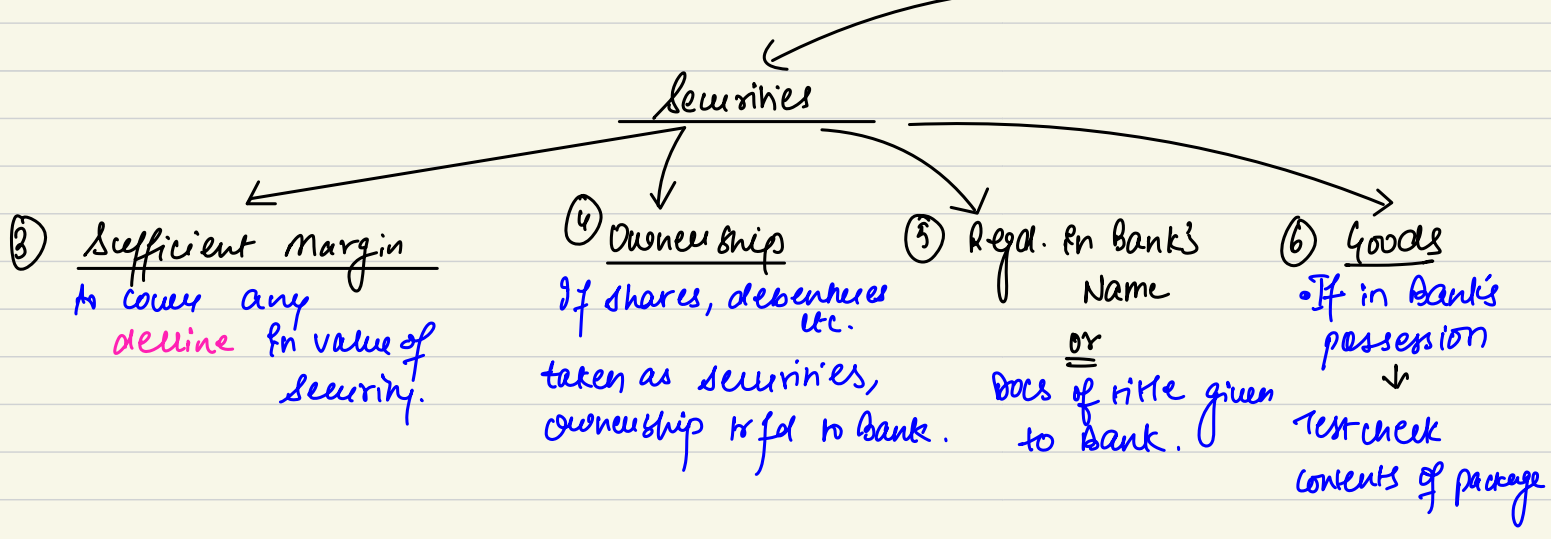 Securities
③ Sufficient Margin
to cover any
decline in value of
security.
④ Ownership
If shares, debentures
etc.
taken as securities,
ownership trfd to Bank.
⑤ Regd. in Bank's
Name
or
Docs of title given
to Bank.
⑥ Goods
• If in Bank's
possession
↓
Test check
contents of package